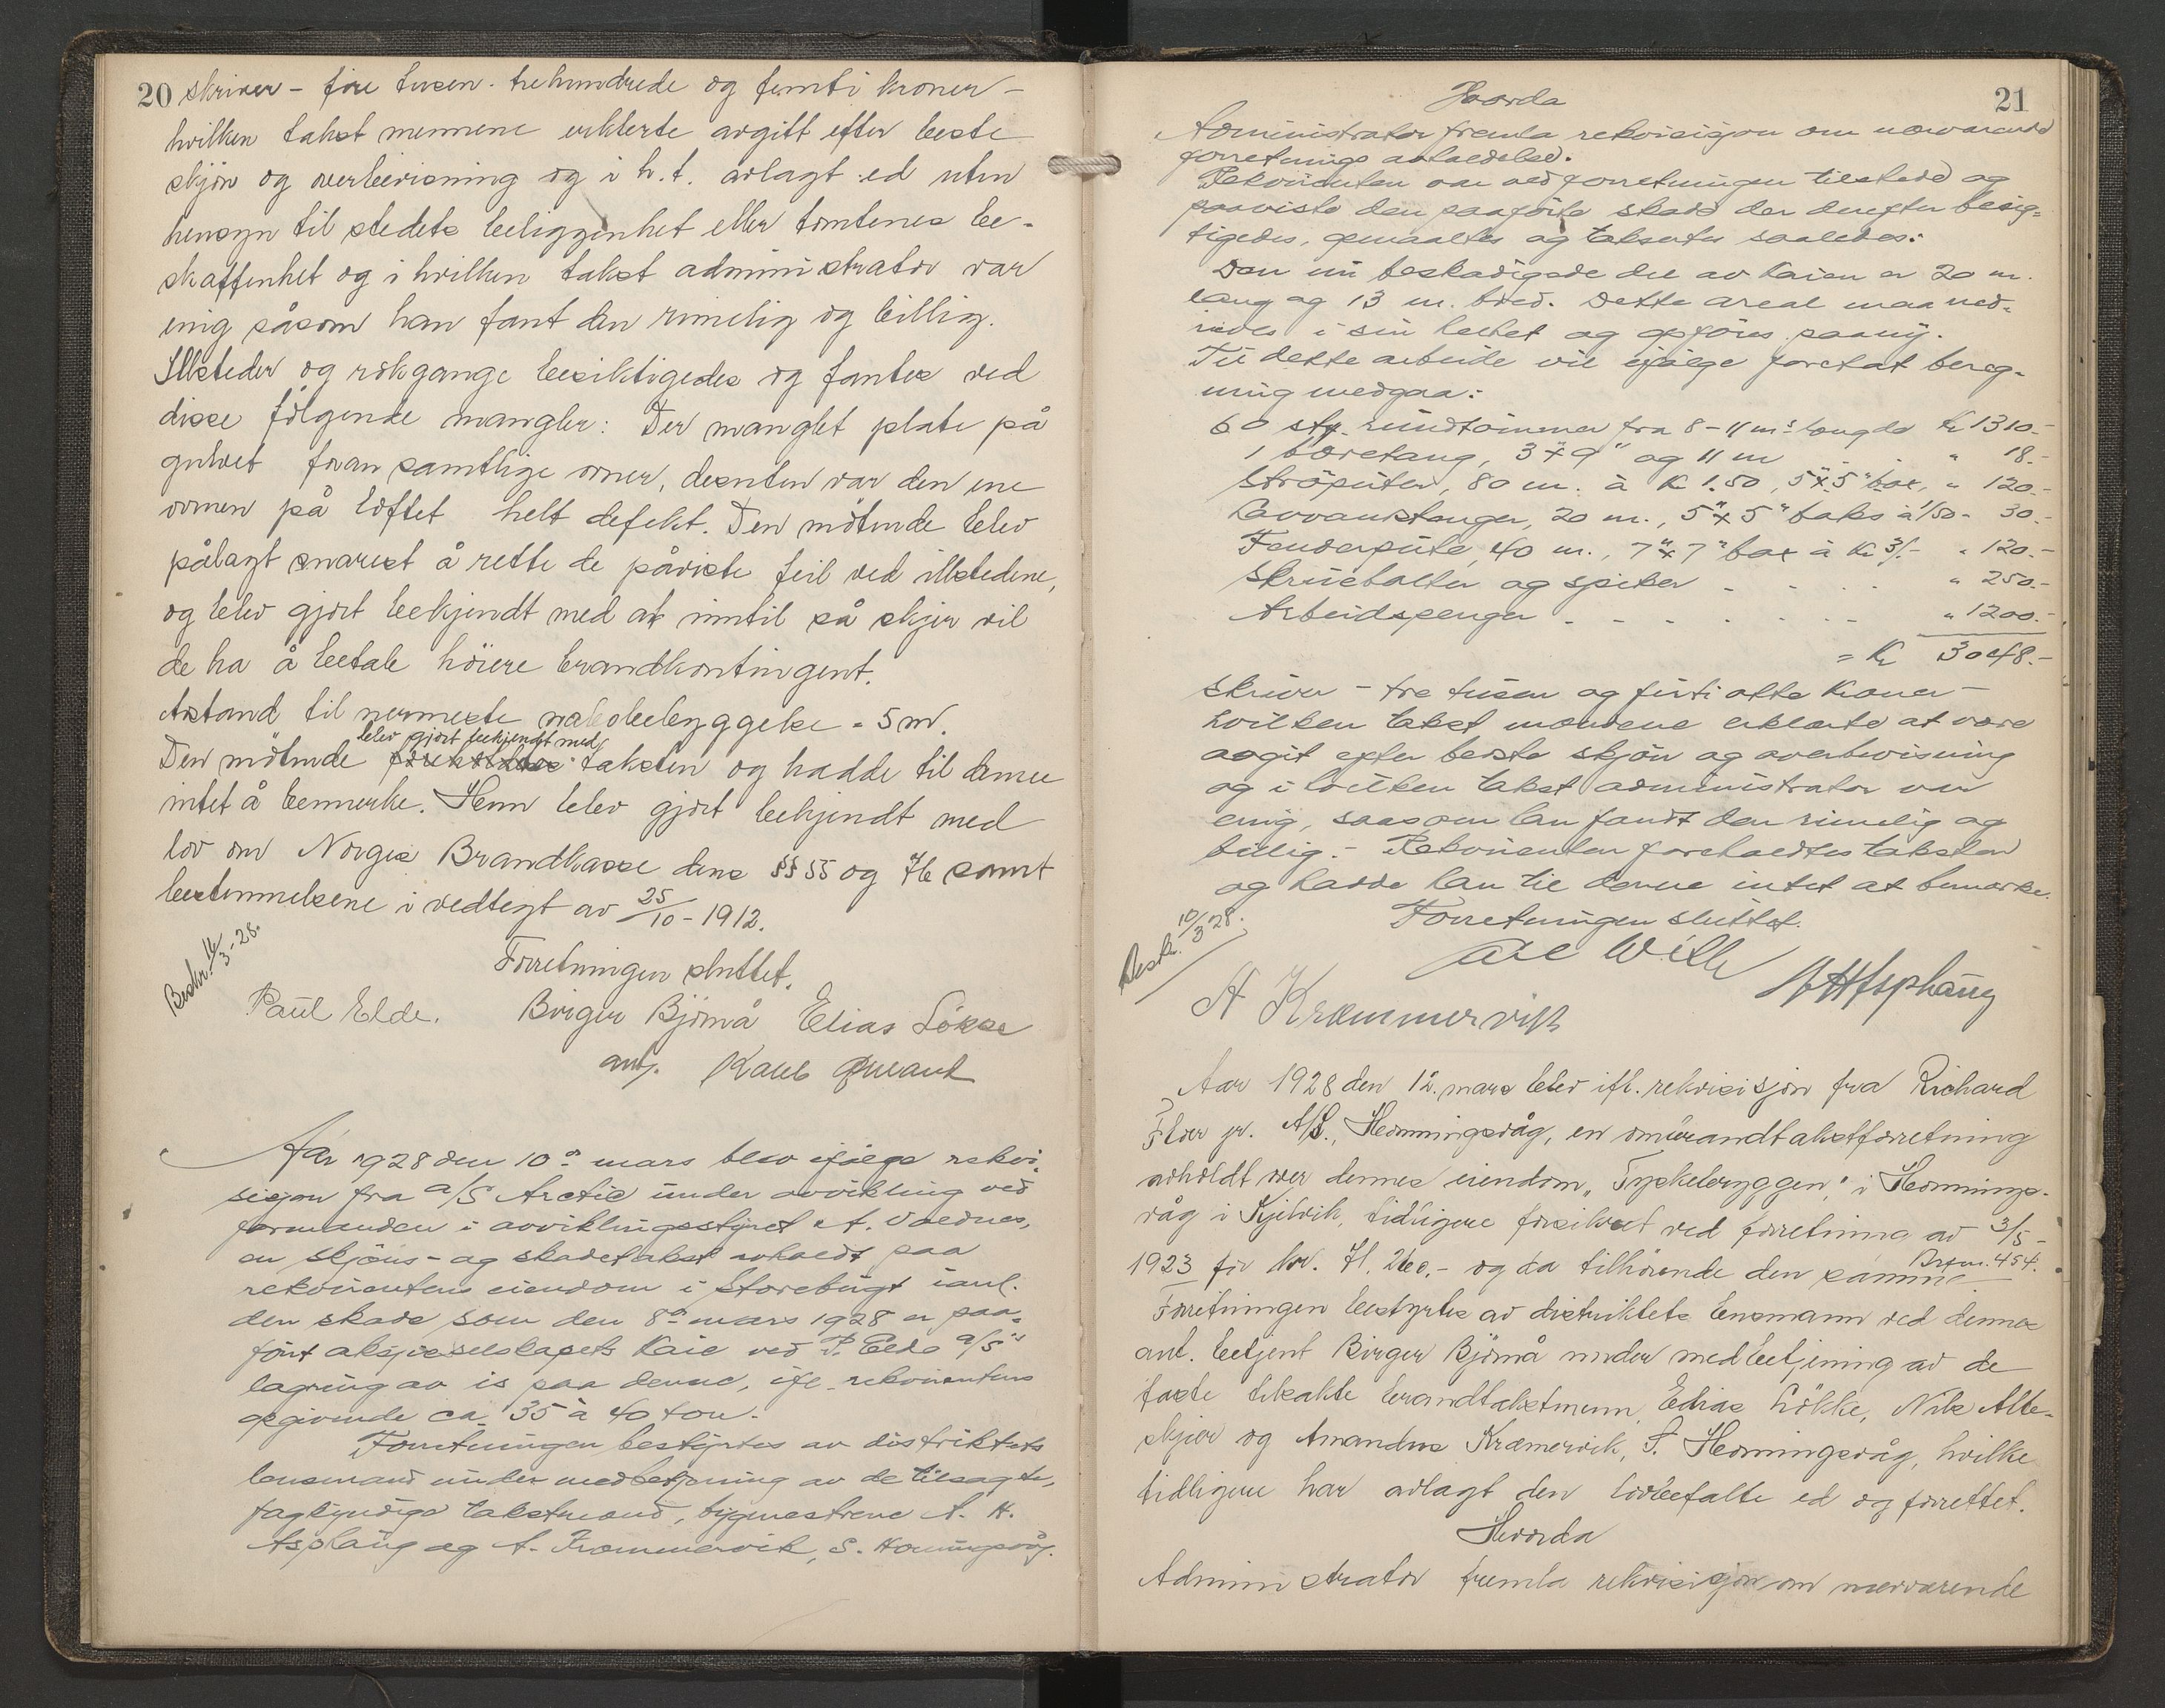 20
skriver - fire tusen trehundrede og femti kroner -
hvilken takst mennene erklerte avgitt efter beste
skjön og overbevisning og i h.t. avlagt ed uten
hensyn til stedets beliggenhet eller tomtenes be-
skaffenhet og i hvilken takst administrator var
enig såsom han fant den rimelig og billig.
Ildsteder og rökgange besiktigedes og fantes ved
disse fölgende mangler: Der manglet plate på
gulvet foran samtlige ovner, desuten var den ene
ovnen på loftet helt defekt. Den mötende blev
pålagt snarest å rette de påviste feil ved ildstedene,
og blev gjort bekjendt med at inntil så skjer vil
de ha å betale höiere brandkontingent.
Avstand til nermeste nabobebyggelse = 5 m.
blev gjort bekjendt med
Den mötende foreholdtes taksten og hadde til denne
intet å bemerke. Henn blev gjort bekjendt med
lov om Norges Brandkasse dens §§ 55 og 76 samt
bestemmelsene i vedtegt av 25/10 - 1912.
Beskr. 16/3 - 28.
Forretningen sluttet.
Paul Elde. Birger Björnå Elias Lökke
anf. Karl
Aar 1928 den 10de mars blev ifölge rekvi-
sisjon fra A/S Arctic under avvikling ved
formanden i avviklingsstyret A. Valdnes,
en skjöns- og skadetakst avholdt paa
rekvirentens eiendom i Storebugt ianl.
den skade som den 8de mars 1928 er paa-
fört aksjeselskapets kaie ved P. Elde A/S's
lagring av is paa denne, ifl. rekvirentens
opgivende ca. 35 à 40 ton.
Forretningen bestyrtes av distriktets
lensmand under medbetjening av de tilsagte,
fagkyndige takstmænd, bygmestrene A. H.
Asphaug og A. Kræmmervik, S. Honningsvåg.
21
Hvorda
Administrator fremla rekvisisjon om nærværende
forretnings avholdelse.
Rekvirenten var ved forretningen tilstede og
paaviste den paaförte skade der derefter besig-
tigedes, opmaaltes og taksertes saaledes:
Den nu beskadigede del av kaien er 20 m.
lang og 13 m. bred. Dette areal maa ned-
rives i sin helhet og opföres paany.
Til dette arbeide vil ifölge foretat bereg-
ning medgaa:
60 stk. rundtömmer fra 8 - 11 m's længde Kr 1310.-
1 bæretang, 3" x 9" og 11 m " 18.-
Ströputer, 80 m. à K 1.50, 5" x 5" box, " 120.-
20 m., 5" x 5" boks à 1/50 - 30.-
Fenderpute, 40 m., 7" x 7" box à Kr 3/- " 120.-
Skruebolter og spiker - - - " 250.-
Arbeidspenger - - - - - - " 1200.-
= Kr 3048.-
skriver - tre tusen og firti otte kroner -
hvilken takst mændene erklærte at være
avgit efter beste skjön og overbevisning
og i hvilken takst administrator var
enig, saasom han fandt den rimelig og
billig. - Rekvirenten foreholdtes taksten
og hadde han til denne intet at bemerke.
Forretningen sluttet.
Beskr. 10/3 28.
Carl Wille
A H Asphaug
A Kræmmervik
Aar 1928 den 12. mars blev ifl. rekvisisjon fra Richard
Flöer jr. A/S., Honningsvåg, en ombrandtakstforretning
avholdt over dennes eiendom „Tyskebryggen" i Honnings-
våg i Kjelvik, tidligere forsikret ved forretning av 3/5 -
1923 for kr. 71.260.- og da tilhörende den samme Brfnr. 454.
Forretningen bestyrtes av distriktets lensmann ved dennes
aut. betjent Birger Björnå under medbetjening av de
faste tilsatte brandtakstmenn, Elias Lökke, Nils Alte-
skjær og Amandus Kræmervik, S. Honningsvåg, hvilke
tidligere har avlagt den lovbefalte ed og forrettet.
Hvorda
Administrator fremla rekvisisjon om nærværende